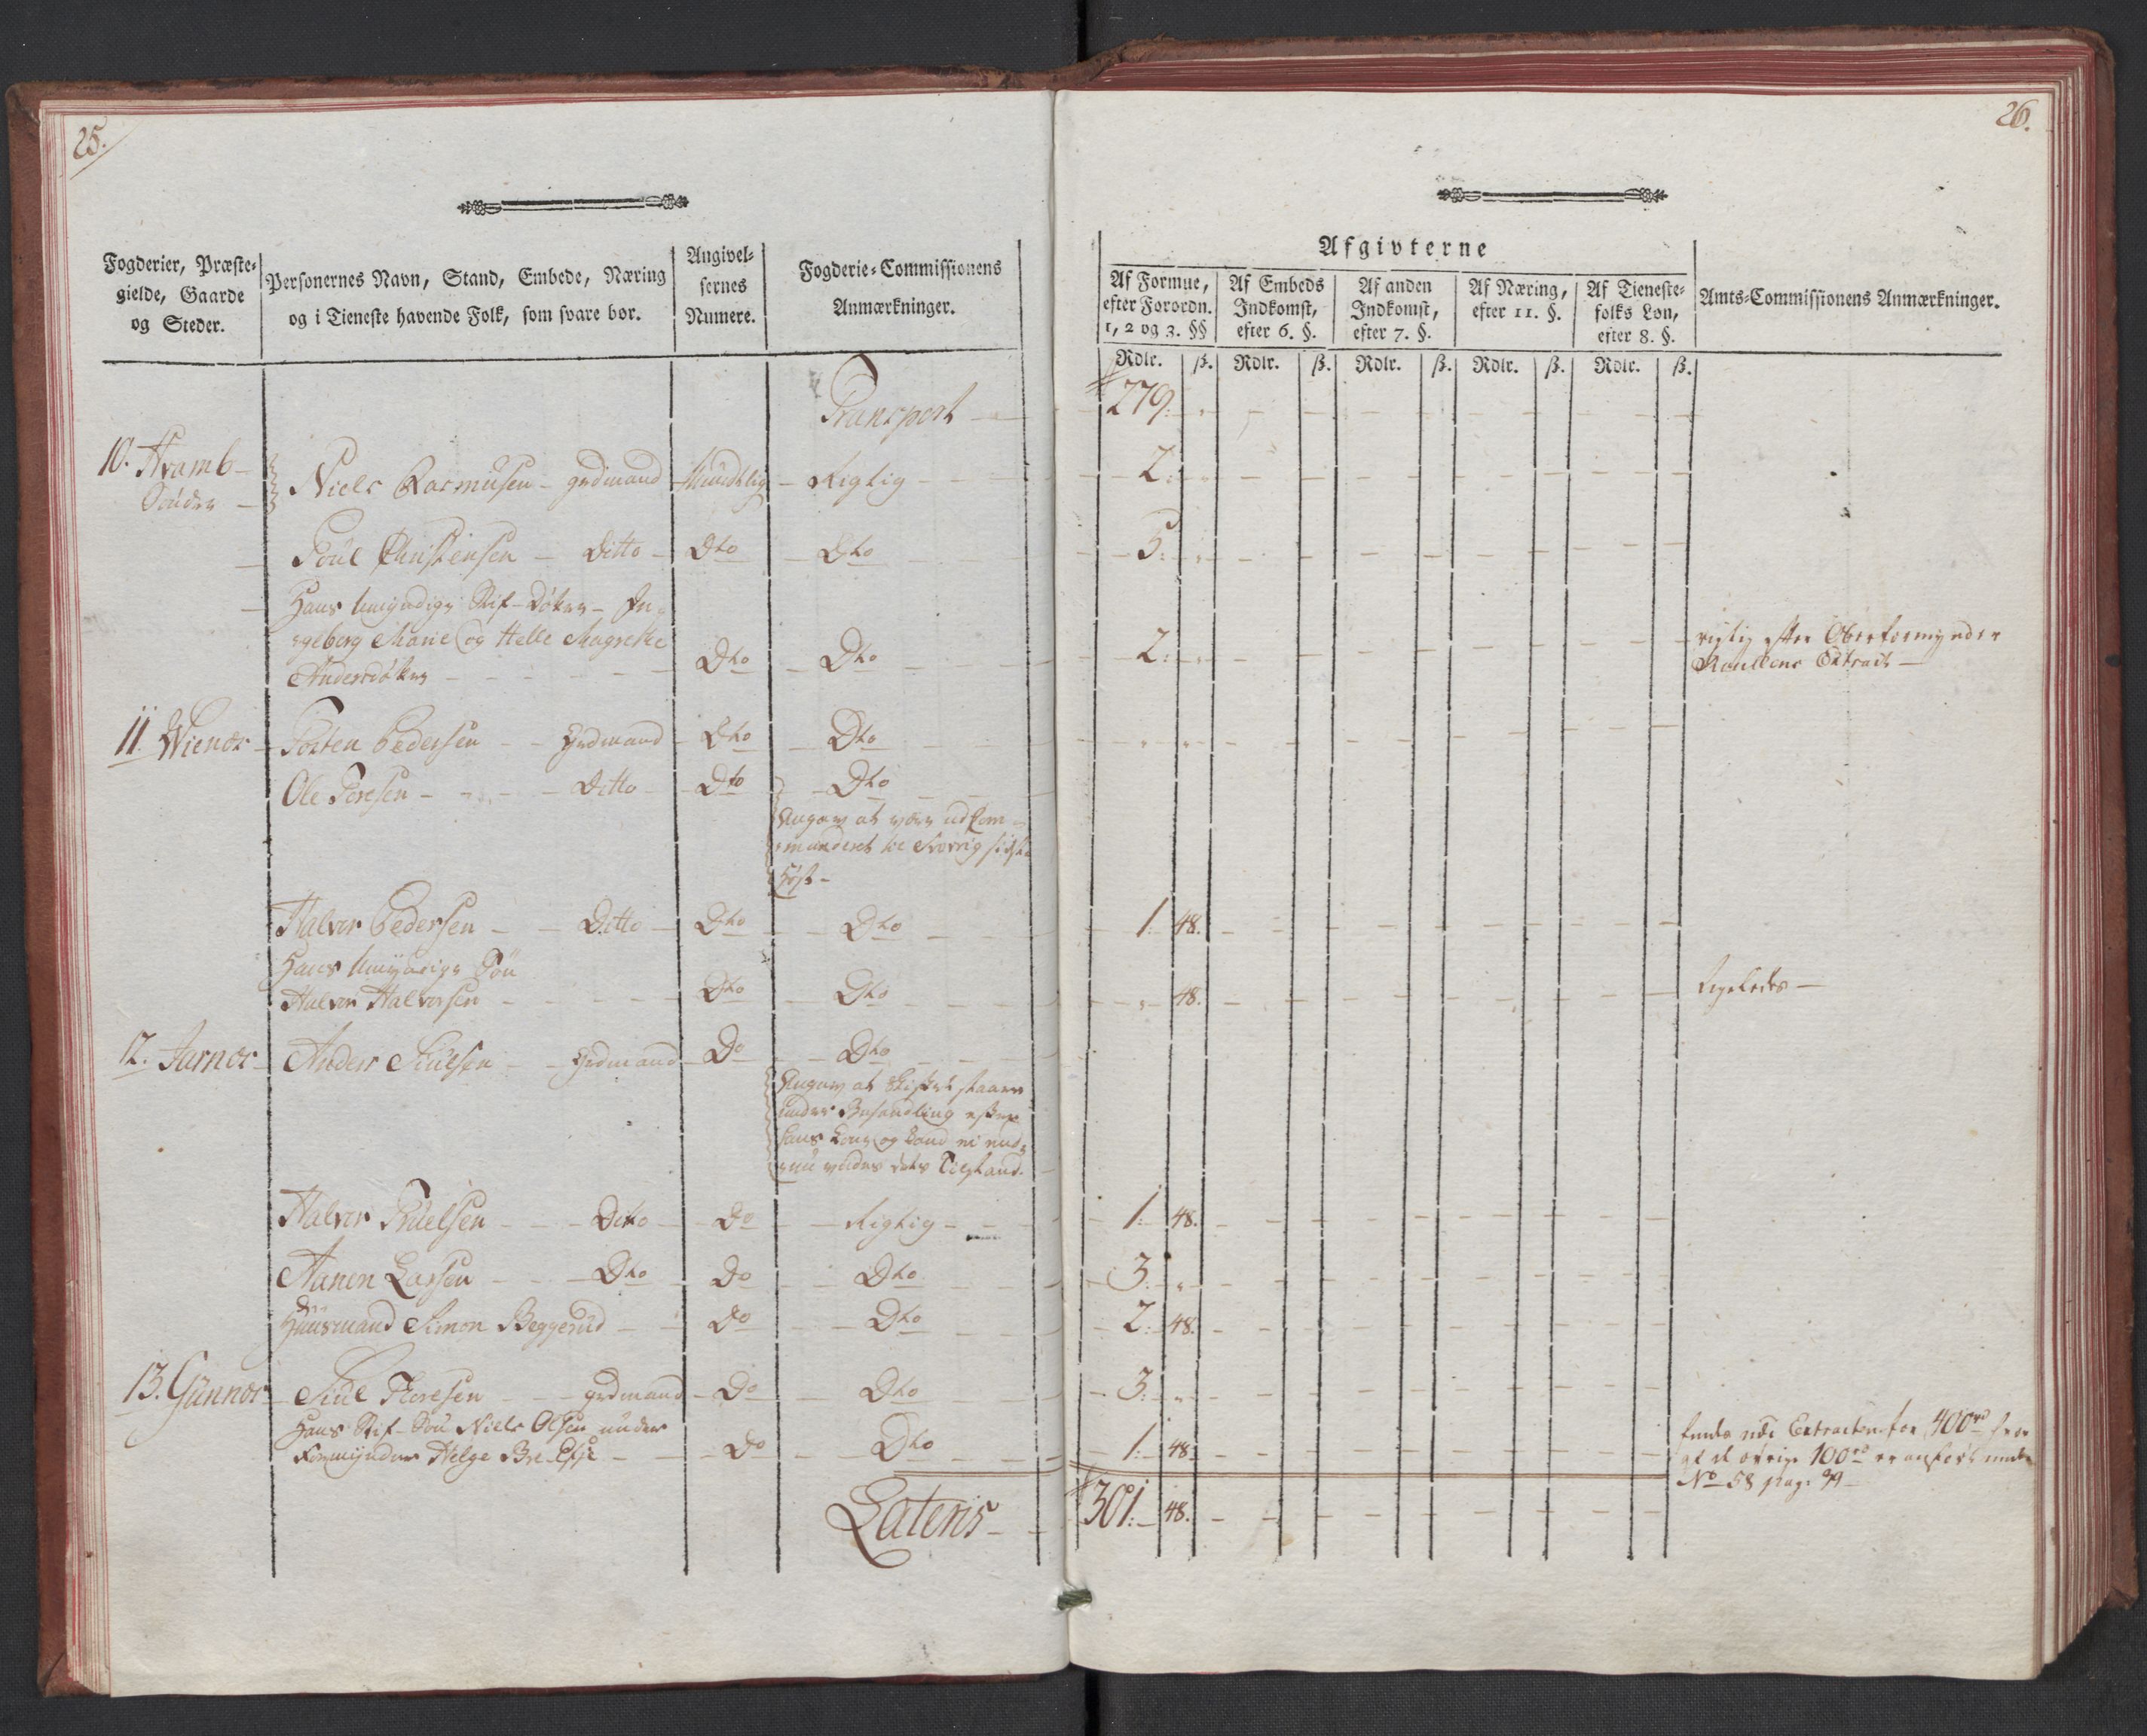 25.
Fogderier, Præste-
gielde, Gaarde
og Steder.
Personernes Navn, Stand, Embede, Næring
og i Tieneste havende Folk, som svare bør.
Angivel-
sernes
Numere.
Fogderie-Commissionens
Anmærkninger.
Transport
10. Hvamb
Søndre
Niels Rasmusen - grdmand Mundtlig Rigtig
Poul Christensen - Ditto Dto Dto
Hans Umyndige Stif-Døttre In-
geborg Marie og Helle Magrethe
Andersdøttre Dto Dto
11. Wienor Torten Pedersen Grdmand Dto Dto
Ole Toresen Ditto Dto Dto
Angav at være udCom-
manderet til Sverrig sidste
Høst
Halvor Pedersen Ditto Dto Dto
Hans Umyndige Søn
Halvor Halvorsen Dto Dto
12. Jarnor Anders Siulsen Grdmand Do Dto
Angav at Skiftet staaer
under Behandling efter
hans Kone og kand ei end-
nu vides dets Tilstand.
Halvor Truelsen Ditto Do Rigtig
Aanen Larsen Dto Do Dto
Huusmand Simon Beggerud Do Dto
13. Gunnor Siul Thoresen grdmand Do Dto
Hans Stif-Søn Niels Olsen under
Formynder Helge Do Dto
Lateris
26.
Afgivterne
Af Formue,
efter Forordn.
1, 2 og 3. §§
Af Embeds
Indkomst,
efter 6. §.
Af anden
Indkomst,
efter 7. §.
Af Næring,
efter 11. §.
Af Tieneste-
folks Løn,
efter 8. §.
Amts-Commissionens Anmærkninger.
Rdlr. ß. Rdlr. ß. Rdlr. ß. Rdlr. ß. Rdlr. ß.
279
2
5
2 rigtig efter Overformynder
Extract
1 48.
48. Ligeledes
1 48.
3
2 48.
3
1 48 findes udi Extracten for 400rd
af de øvrige 100rd er anført under
No 58 pag.
301 48.